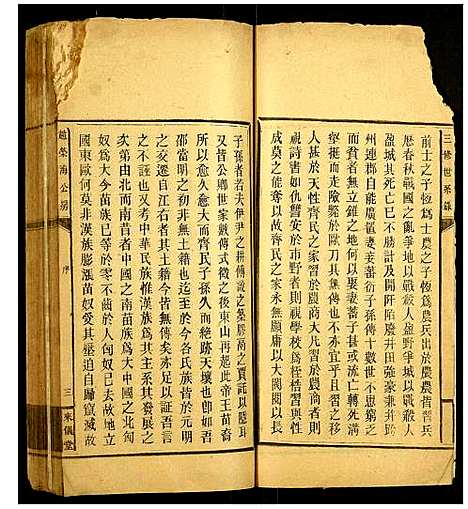 三修世系錄
前士之子恆爲士農之子恆爲農兵出於農農皆習兵
歷春秋戰國之亂爭地以戰殺人盈野爭城以戰殺人
盈城其死亡已不勝計及開阡陌廢井田強豪兼并跨
州連郡自能廣置妻妾蕃衍子孫傳十數世不患窮乏
而貧者無立錐之地何以娶妻蓄子而流亡轉死溝
壑挺而走險於歐刀具盡亦宜乎且習
人甚於天性齊民之家習於農商大凡習於農商者則
視詩書如仇讐安於市野者則視學校爲桎梏習與性
成莫之能奪故以齊民之家永無顯庸以大閥閱以長
子孫者若夫伊尹之耕傅說之築膠鬲之賈託以隱耳
又皆公卿世家數傳式微之後東山再起此帝王苗裔
所以愈久愈大而齊民子孫久而絕跡天壤也
邵當明之初并無土籍也迄至於今各氏族皆於元明
之交遷自江右者其土籍又無傳矣亦足證吾言
之不誣也又考中華民族惟漢族爲大系其發展之
次第由北而南昔者中國之南苗族爲大中國之北匈
奴爲大今苗族已等於零不齒於人匈奴已去故
國東歐何莫非漢族膨漲苗奴受其壓迫自歸竄滅故
趙榮海公房
序
三
東儀堂